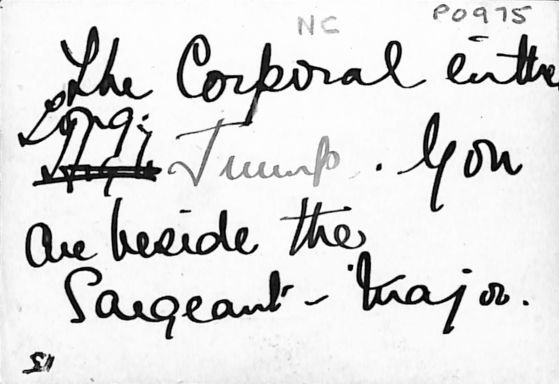 NC
P0975
The Corporal in the
Trump. You
are beside the
Sargeant-Major.